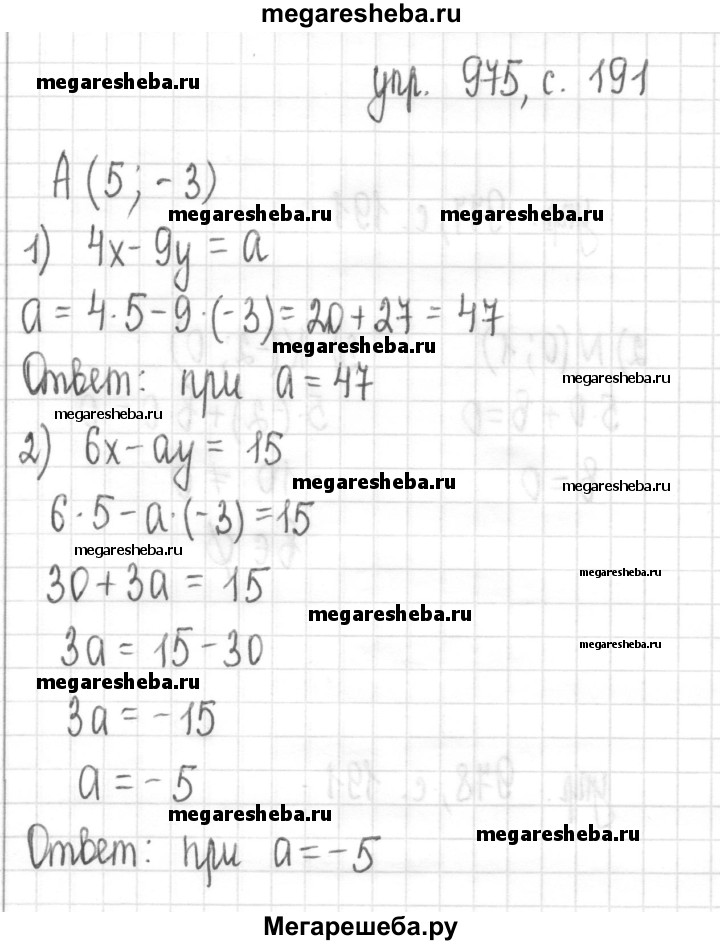 megaresheba.ru
megaresheba.ru
упр. 975, с. 191
А (5; -3)
megaresheba.ru
megaresheba.ru
1) 4x - 9y = a
a = 4·5 - 9·(-3) = 20 + 27 = 47
megaresheba.ru
Ответ: при a = 47
megaresheba.ru
megaresheba.ru
2) 6x - ay = 15
megaresheba.ru
megaresheba.ru
6·5 - a·(-3) = 15
megaresheba.ru
30 + 3a = 15
megaresheba.ru
megaresheba.ru
3a = 15 - 30
megaresheba.ru
megaresheba.ru
3a = -15
a = -5
megaresheba.ru
megaresheba.ru
Ответ: при a = -5
Мегарешеба.ру